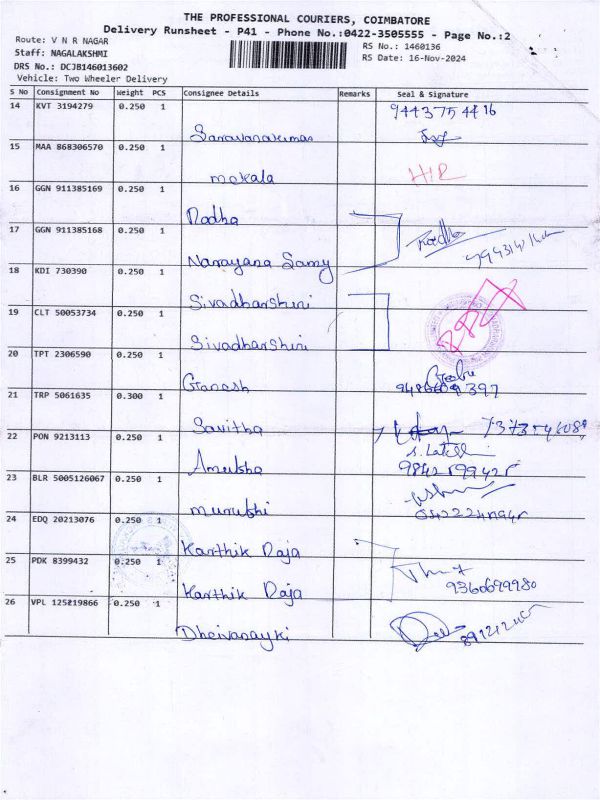 THE PROFESSIONAL COURIERS, COIMBATORE
Delivery Runsheet - P41 - Phone No.:0422-3505555 - Page No.:2
Route: V N R NAGAR
RS No: 1460136
Staff: NAGALAKSHMI
RS Date: 16-Nov-2024
DRS No.: DCJB146013602
Vehicle: Two Wheeler Delivery
S No Consignment No Weight PCS Consignee Details Remarks Seal & Signature
14 KVT 3194279 0.250 1 9443754416
Saravanakumar
15 MAA 868306570 0.250 1
mekala
16 GGN 911385169 0.250 1
Radha
17 GGN 911385168 0.250 1 Radha
Narayana Samy
18 KDI 730390 0.250 1
Sivadharshini
19 CLT 50053734 0.250 1
Sivadharshini
20 TPT 2306590 0.250 1
Ganesh
21 TRP 5061635 0.300 1
Savitha
22 PON 9213113 0.250 1
23 BLR 5005126067 0.250 1
24 EDQ 20213076 0.250 1
Karthik Raja
25 PDK 8399432 0.250 1
Karthik Raja 9360699980
26 VPL 125219866 0.250 1